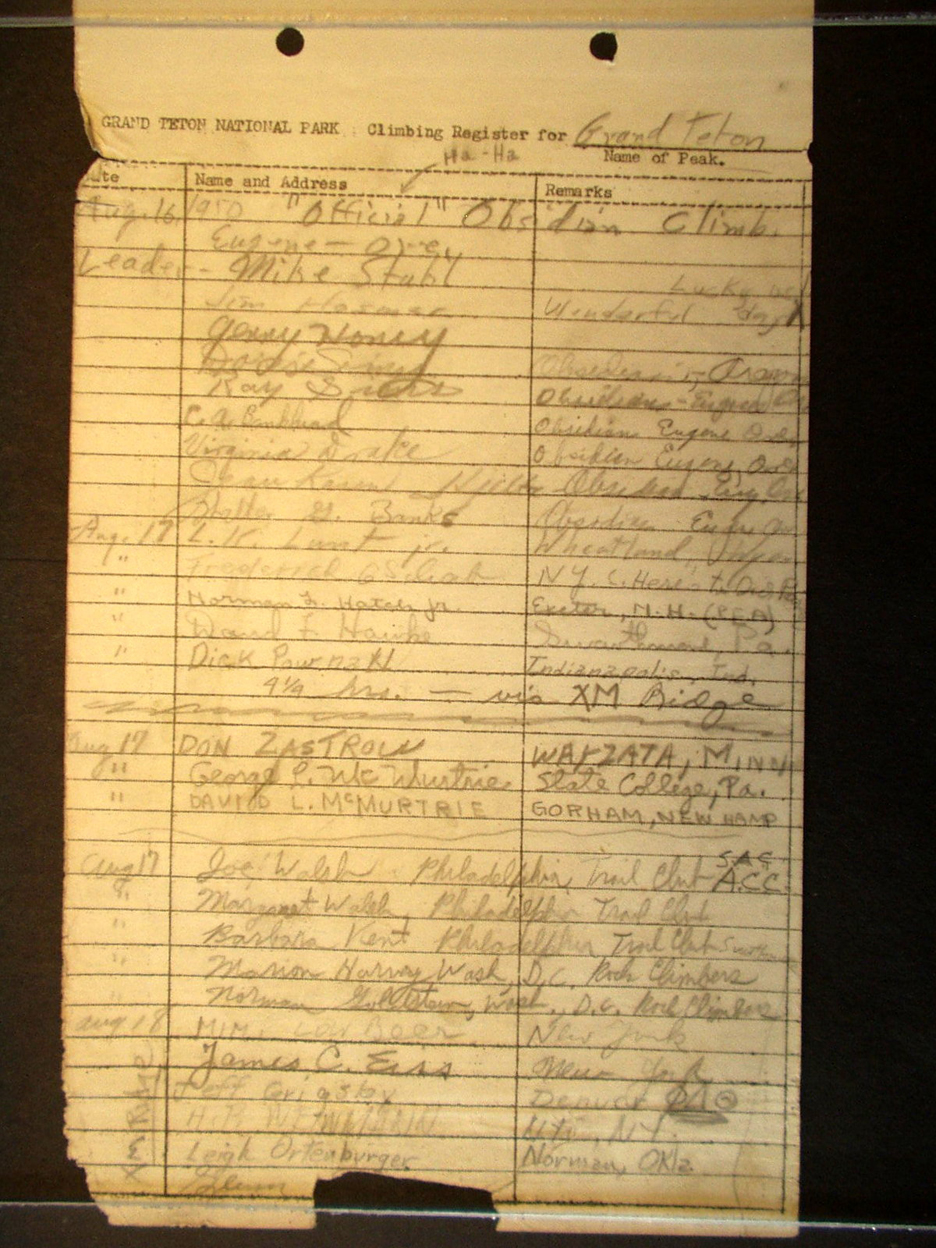 GRAND TETON NATIONAL PARK Climbing Register for Grand Teton
Ha-Ha
Name of Peak.
Name and Address Remarks
Aug. 16, 1950 "Official" Obsidian Climb.
Eugene - Ore.
Leader - Mike Stahl
Lucky us
Jim Wonderful day
Gerry Honey
Doris Sims Obsidian
Ray Sims Obsidian - Eugene
C. A. Bankhead Obsidian Eugene Ore
Virginia Drake Obsidian Eugene, Ore
Obsidian Eug, Ore
Walter G. Banks Obsidian Eugene
Aug. 17 L. K. Lunt jr. Wheatland, Wyo
" Frederick N.Y.C. Here's to
" Norman L. Hatch jr. Exeter, N.H. (PEA)
" David F. Hawke Swarthmore, Pa.
" Dick Pownall Indianapolis, Ind.
4 1/4 hrs. — via XM Ridge
Aug 17 DON ZASTROW WAYZATA, MINN
" George L. McMurtrie State College, Pa.
" DAVID L. McMURTRIE GORHAM, NEW HAMP
Aug 17 Joe Walsh Philadelphia Trail Club A.C.C.
" Margaret Walsh, Philadelphia Trail Club
" Barbara Kent Philadelphia Trail Club
" Marion Harvey Wash, D.C. Rock Climbers
" Norman Goldstein, Wash., D.C. Rock Climbers
Aug 18 New York
James C. New York
Jeff Grigsby Denver
N.Y.
Leigh Ortenburger Norman, Okla